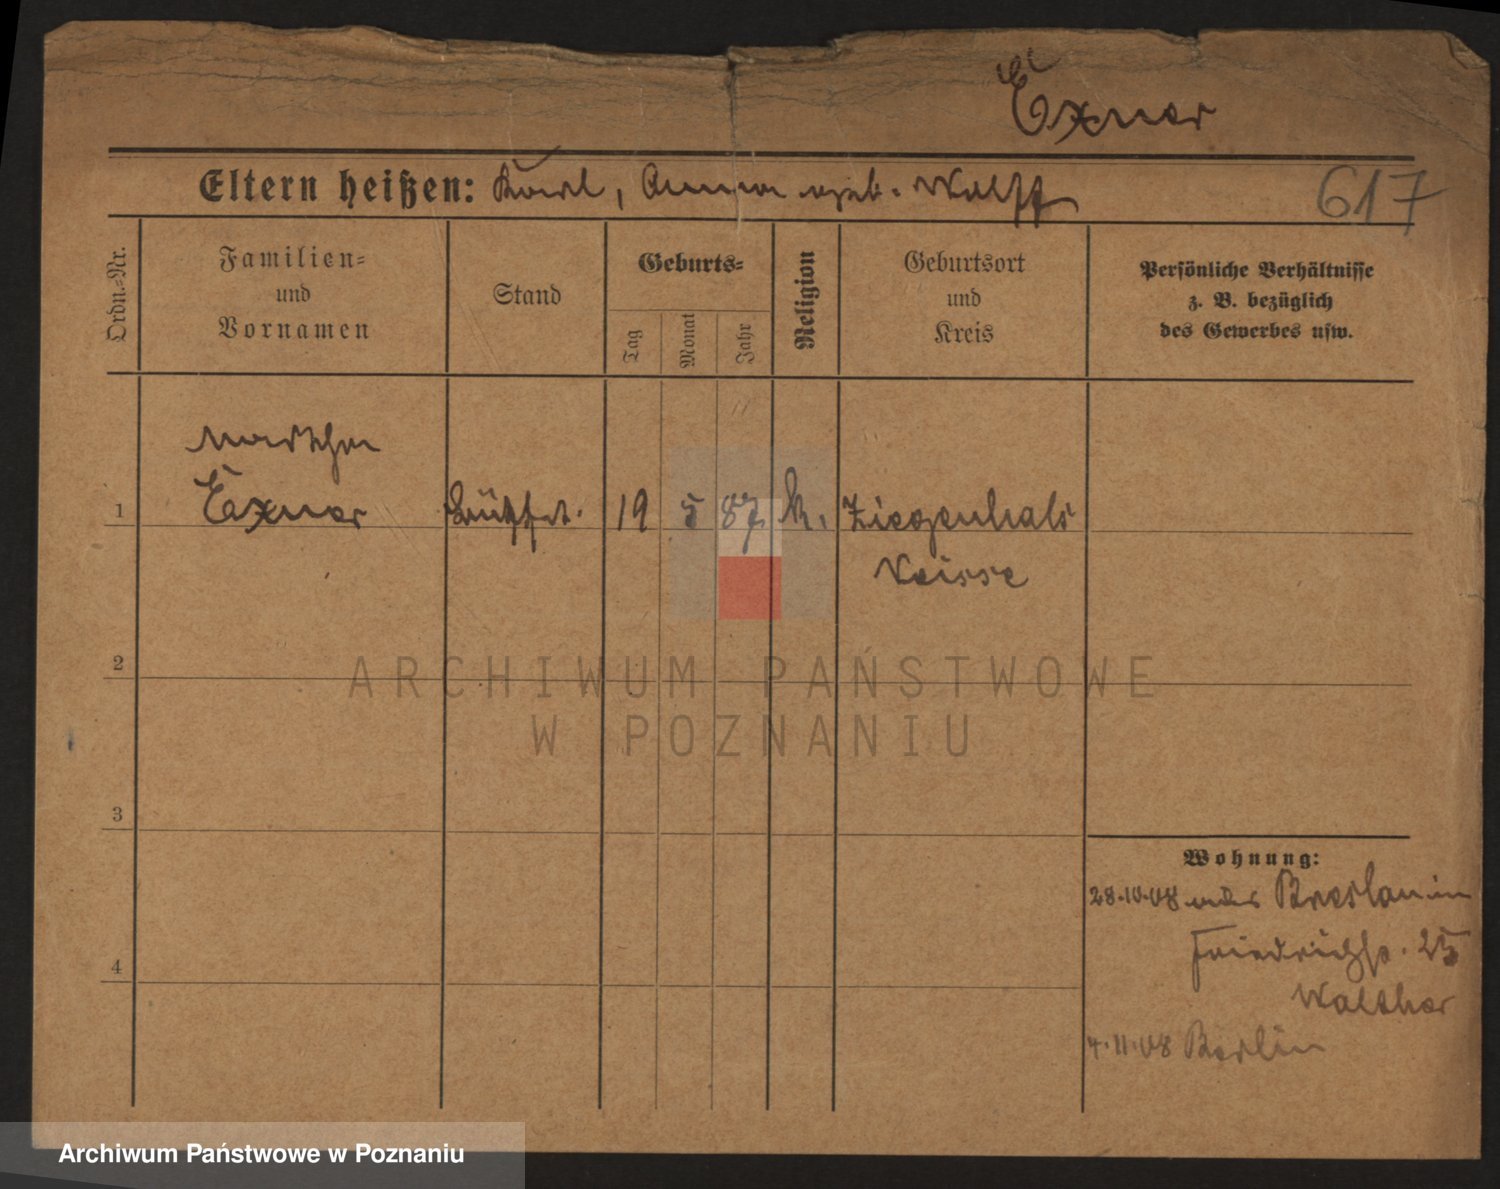 Exner
Eltern heißen: Karl, Anna geb. Wolff
617
Ordn.-Nr.
Familien=
und
Vornamen
Stand
Geburts=
Tag
Monat
Jahr
Religion
Geburtsort
und
Kreis
Persönliche Verhältnisse
z. B. bezüglich
des Gewerbes usw.
Martha
1 Exner 19 5 87 k. Ziegenhals
Neisse
2
ARCHIWUM PAŃSTWOWE
W POZNANIU
3
Wohnung:
28.10.08 aus Breslau in
Friedrichstr. 25
4
Walther
4.11.08 Berlin
Archiwum Państwowe w Poznaniu